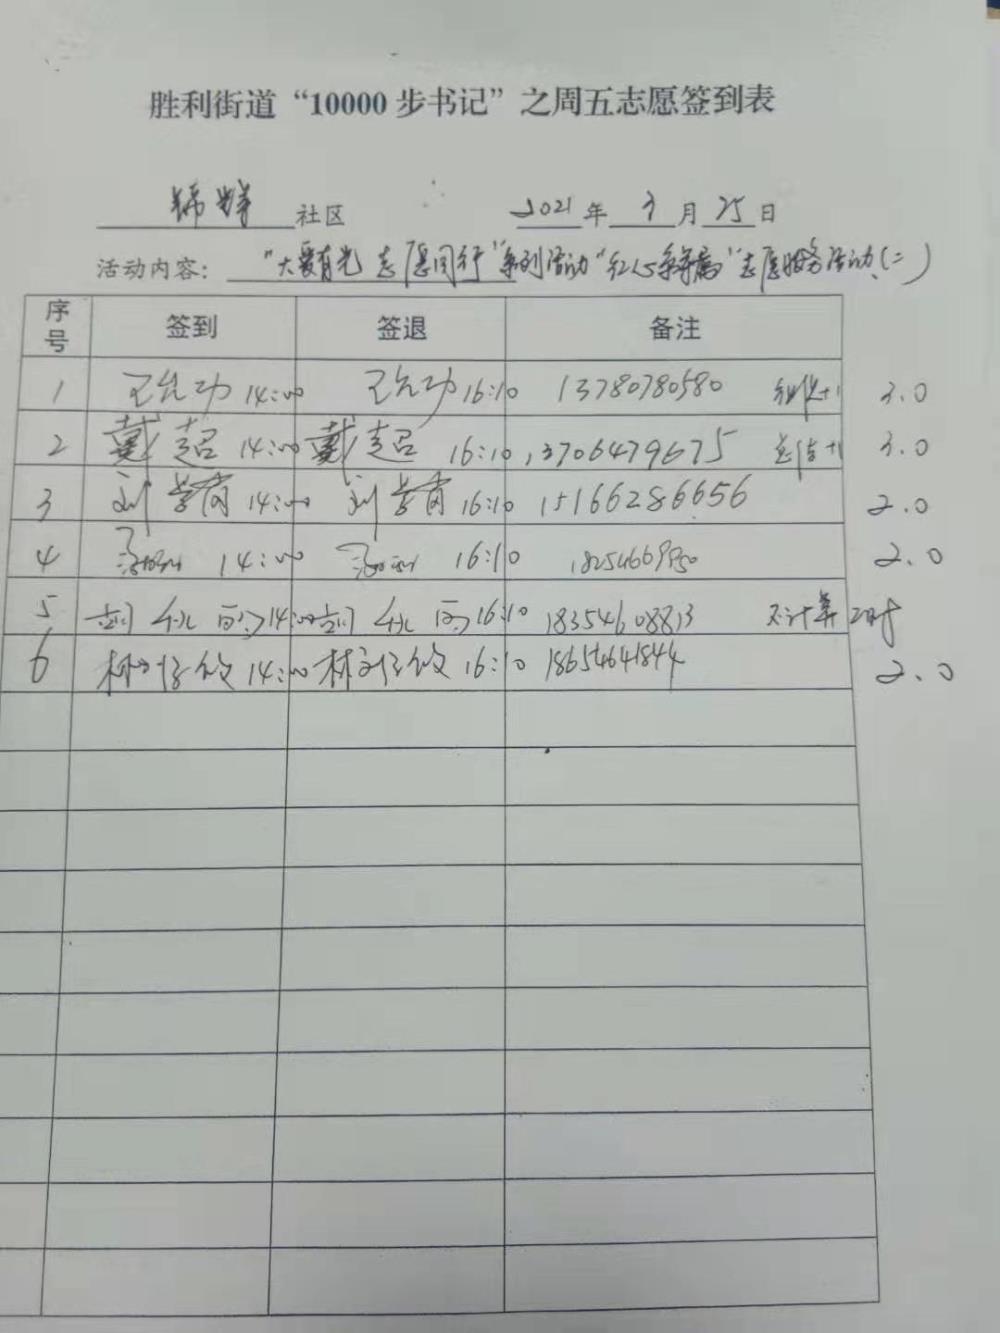 胜利街道“10000步书记”之周五志愿签到表
锦辉社区 2021年3月25日
活动内容：“大爱有光 志愿同行”系列活动“红心”志愿服务活动(二)
序号 签到 签退 备注
1 王允功 14:00 王允功 16:10 13780780580 组织+1 3.0
2 戴超 14:00 戴超 16:10 13706479675 总结+1 3.0
3 刘学青 14:00 刘学青 16:10 15166286656 2.0
4 14:00 16:10 2.0
5 14:00 16:10 18354608813 不计算工时
6 14:00 16:10 18654641844 2.0